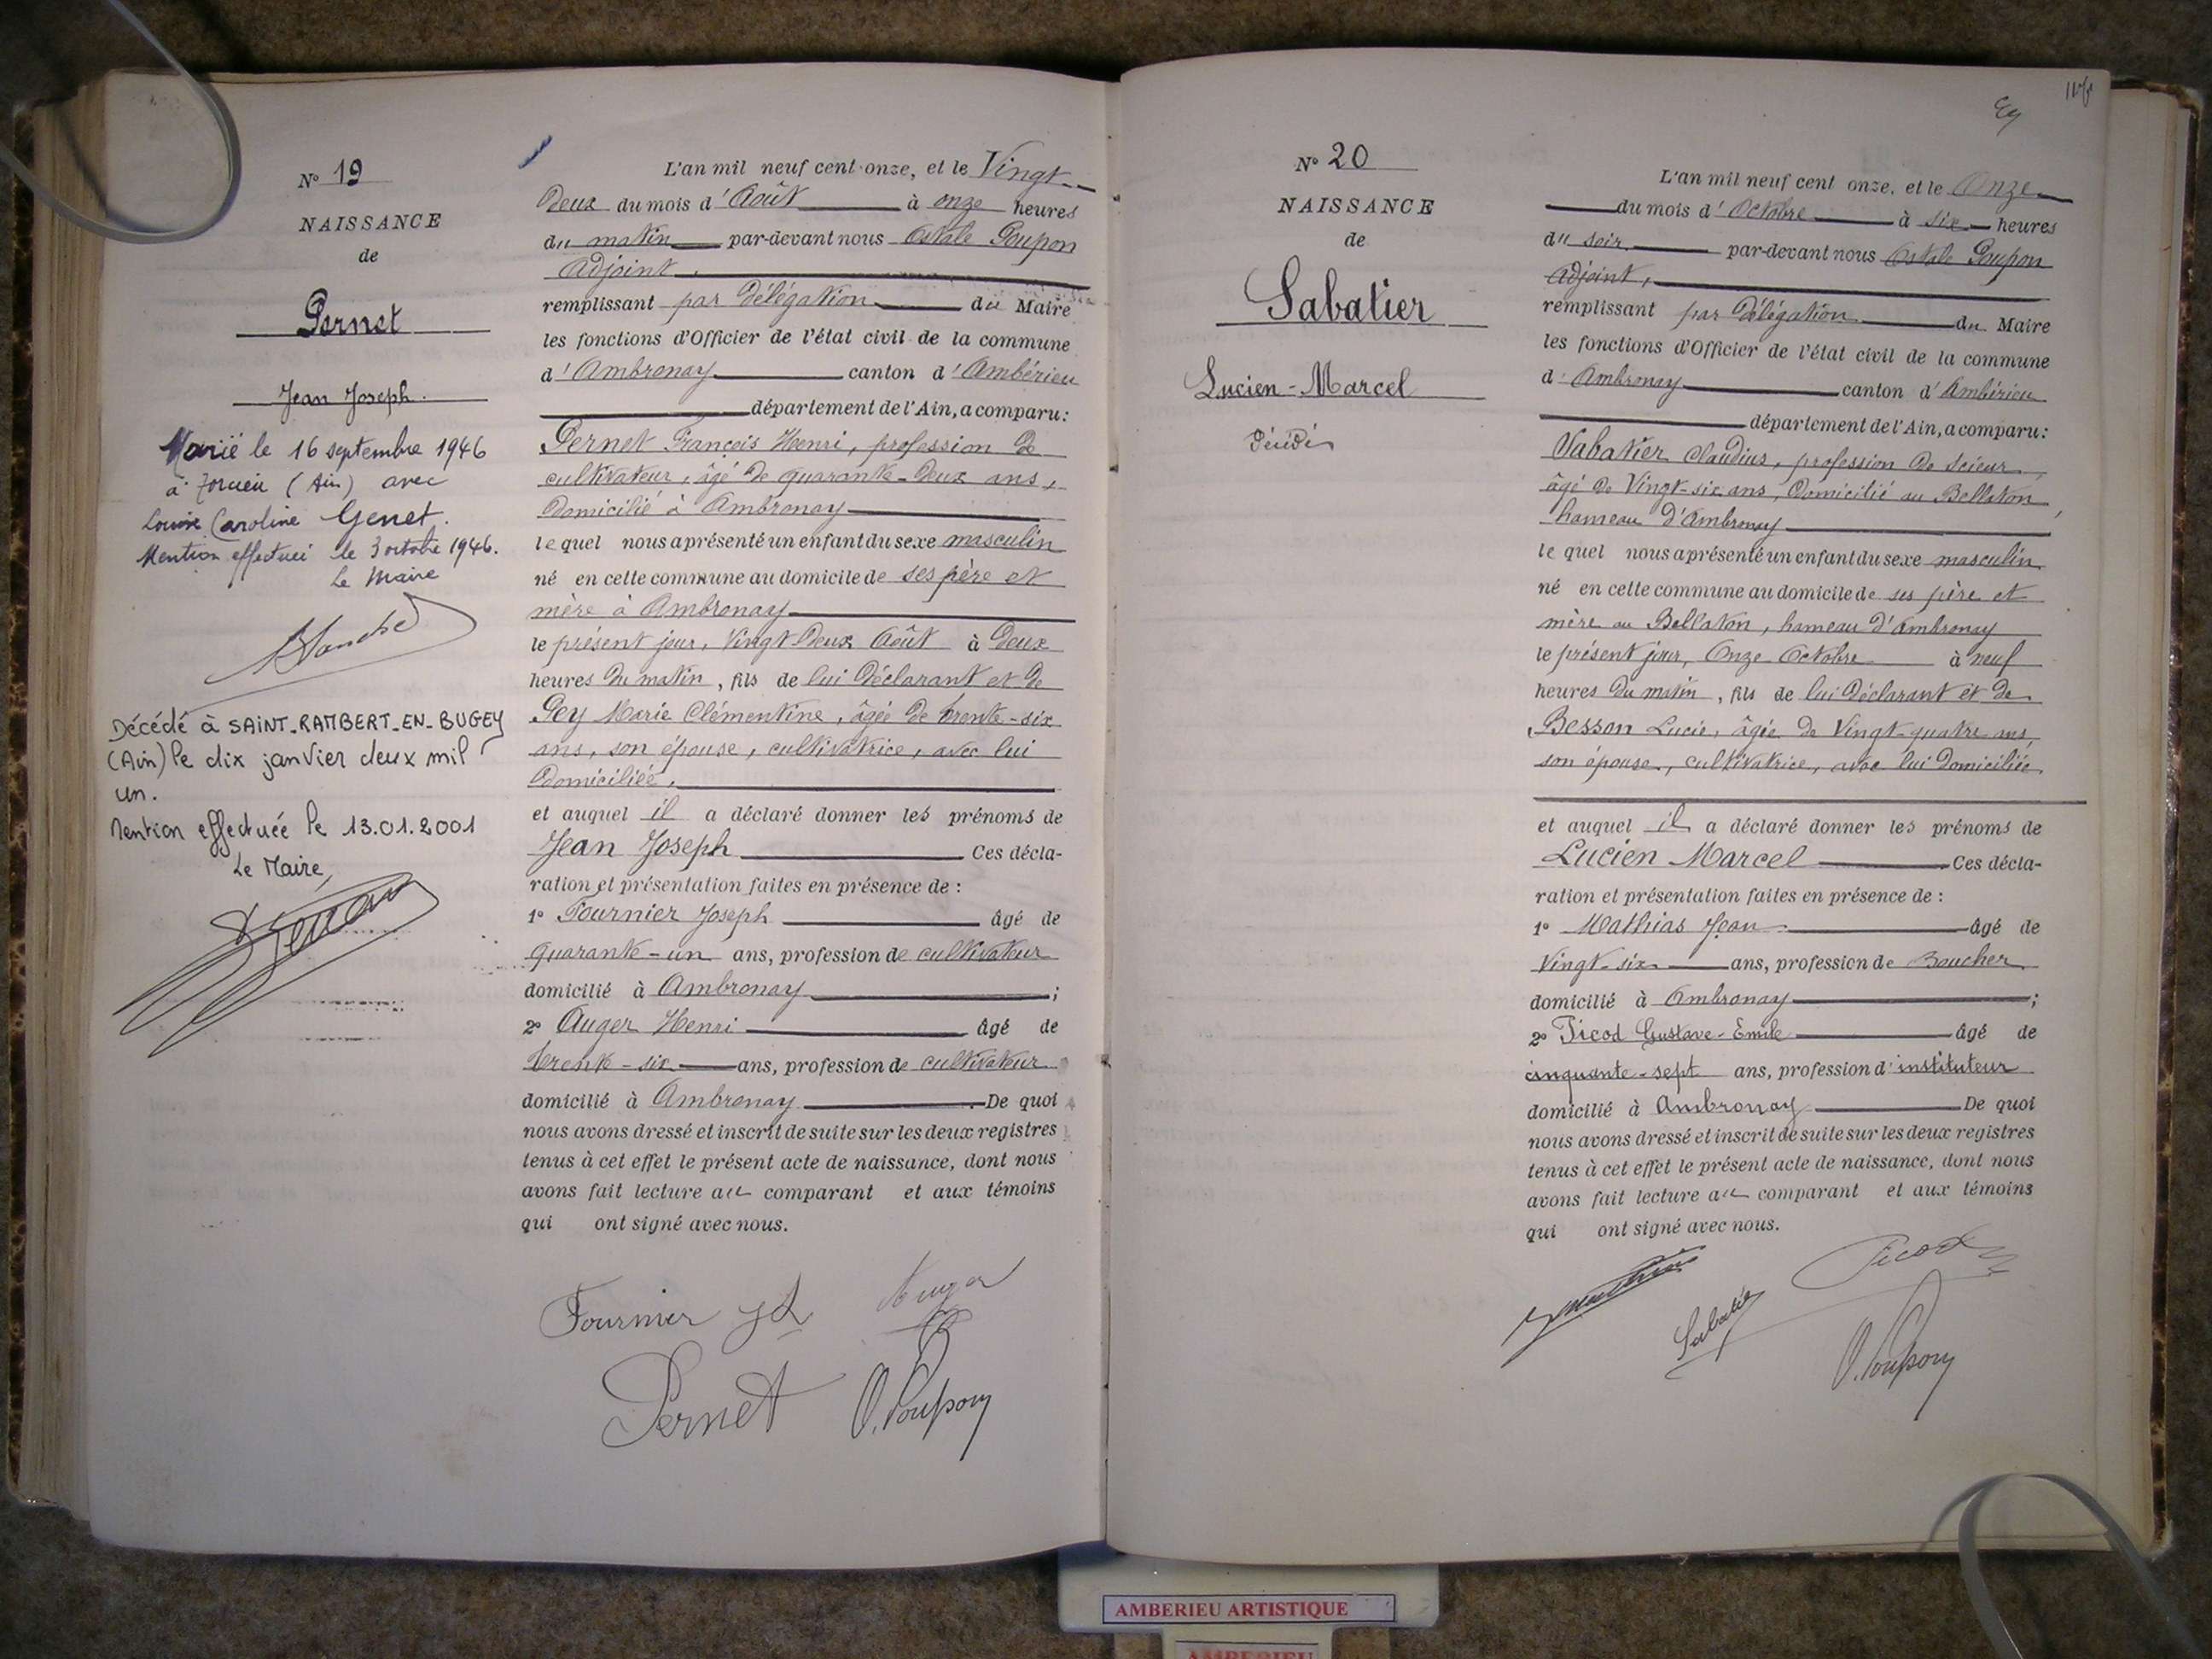 N° 19
NAISSANCE
de
Pernet
Jean Joseph.
Marié le 16 septembre 1946
à Torcieu (Ain) avec
Louise Caroline Genet.
Mention effectuée le 3 octobre 1946.
Le Maire
Décédé à SAINT-RAMBERT-EN-BUGEY
(Ain) le dix janvier deux mil
un.
Mention effectuée le 13.01.2001
Le Maire,
L'an mil neuf cent onze, et le Vingt-
Deux du mois d'Août à onze heures
du matin par-devant nous Poupon
Adjoint,
remplissant par Délégation du Maire
les fonctions d'Officier de l'état civil de la commune
d'Ambronay canton d'Ambérieu
département de l'Ain, a comparu:
Pernet François Henri, profession de
cultivateur, âgé de quarante-deux ans,
Domicilié à Ambronay
lequel nous a présenté un enfant du sexe masculin
né en cette commune au domicile de ses père et
mère à Ambronay
le présent jour, Vingt Deux Août à Deux
heures du matin, fils de lui Déclarant et de
Gey Marie Clémentine, âgée de trente-six
ans, son épouse, cultivatrice, avec lui
Domiciliée,
et auquel il a déclaré donner les prénoms de
Jean Joseph Ces décla-
ration et présentation faites en présence de :
1° Fournier Joseph âgé de
quarante-un ans, profession de cultivateur
domicilié à Ambronay ;
2° Auger Henri âgé de
trente-six ans, profession de cultivateur
domicilié à Ambronay De quoi
nous avons dressé et inscrit de suite sur les deux registres
tenus à cet effet le présent acte de naissance, dont nous
avons fait lecture au comparant et aux témoins
qui ont signé avec nous.
Fournier Jh Auger
Pernet O. Poupon
N° 20
NAISSANCE
de
Sabatier
Lucien-Marcel
L'an mil neuf cent onze, et le Onze
du mois d'Octobre à six heures
du soir par-devant nous Poupon
Adjoint,
remplissant par Délégation du Maire
les fonctions d'Officier de l'état civil de la commune
d'Ambronay canton d'Ambérieu
département de l'Ain, a comparu:
Sabatier Claudius, profession de scieur,
âgé de Vingt-six ans, Domicilié au Bellaton,
hameau d'Ambronay
lequel nous a présenté un enfant du sexe masculin
né en cette commune au domicile de ses père et
mère au Bellaton, hameau d'Ambronay
le présent jour, Onze Octobre à neuf
heures du matin, fils de lui Déclarant et de
Besson Lucie, âgée de Vingt-quatre ans,
son épouse, cultivatrice, avec lui Domiciliée
et auquel il a déclaré donner les prénoms de
Lucien Marcel Ces décla-
ration et présentation faites en présence de :
1° Mathias Jean âgé de
Vingt-six ans, profession de Boucher
domicilié à Ambronay ;
2° Picod Gustave-Emile âgé de
cinquante-sept ans, profession d'instituteur
domicilié à Ambronay De quoi
nous avons dressé et inscrit de suite sur les deux registres
tenus à cet effet le présent acte de naissance, dont nous
avons fait lecture au comparant et aux témoins
qui ont signé avec nous.
Picod
Sabatier
O. Poupon
AMBERIEU ARTISTIQUE
AMBERIEU